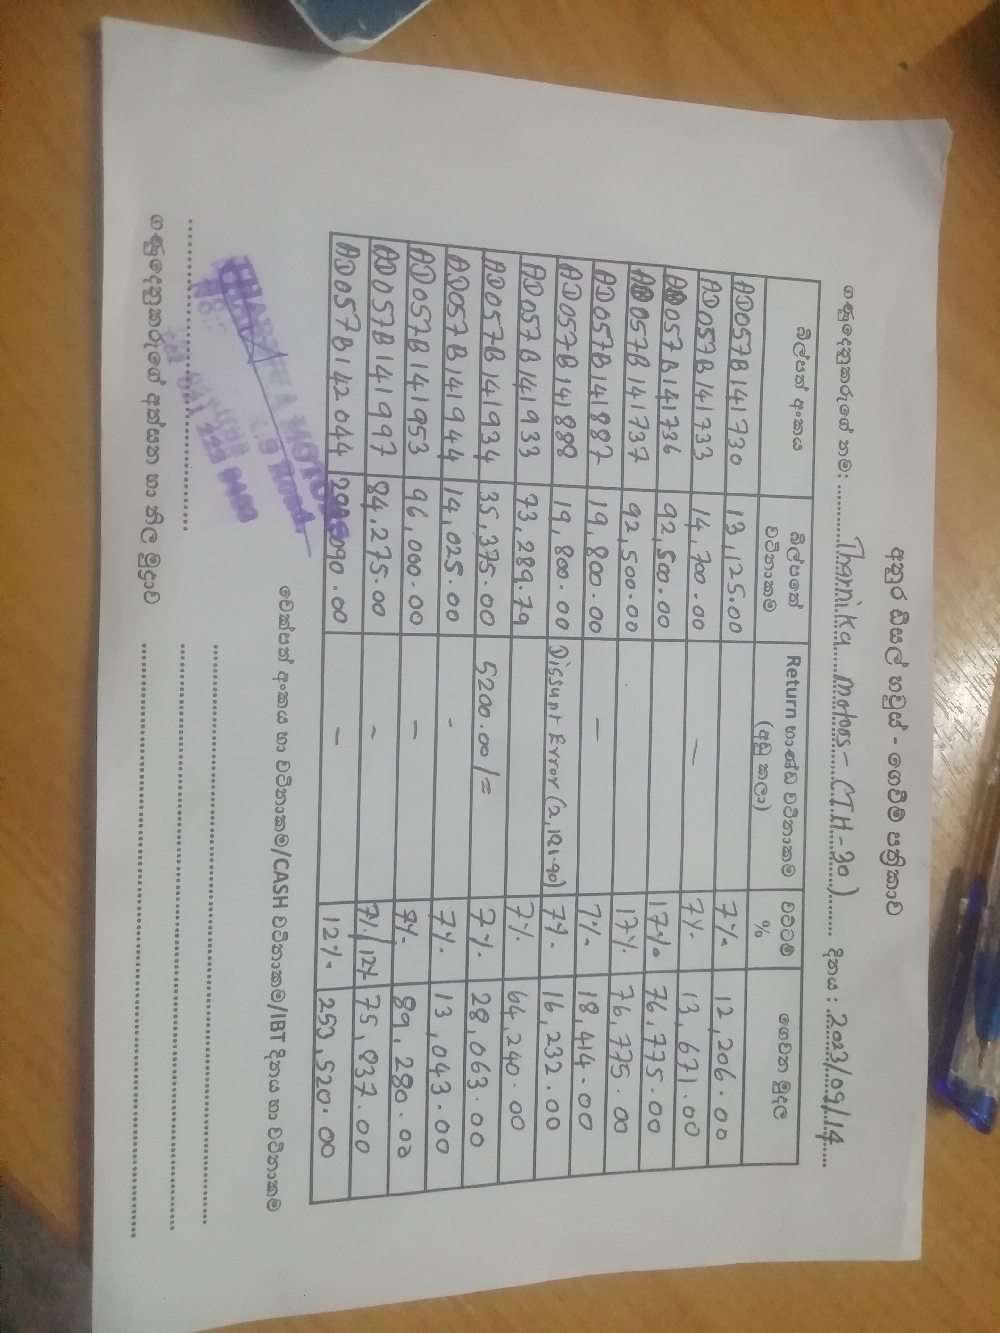 අතුර ඩීසල් හවුස් - ගෙවීම් පත්‍රිකාව
ගණුදෙනුකරුගේ නම: Tharnika motors - CTH-30) දිනය : 2023/09/14
බිල්පත් අංකය බිල්පතේ වටිනාකම Return භාණ්ඩ වටිනාකම (අඩු කලා) වට්ටම් % ගෙවන මුදල
AD057B141730 13,125.00 7% 12,206.00
AD057B141733 14,700.00 — 7% 13,671.00
AD057B141736 92,500.00 17% 76,775.00
AD057B141737 92,500.00 17% 76,775.00
AD057B141887 19,800.00 — 7% 18,414.00
AD057B141888 19,800.00 Dissunt Error (2,181.90) 7% 16,232.00
AD057B141933 73,289.79 7% 64,240.00
AD057B141934 35,375.00 5200.00/= 7% 28,063.00
AD057B141944 14,025.00 - 7% 13,043.00
AD057B141953 96,000.00 — 7% 89,280.00
AD057B141997 84,275.00 - 7%/12% 75,837.00
AD057B142044 090.00 — 12% 253,520.00
චෙක්පත් අංකය හා වටිනාකම/CASH වටිනාකම/IBT දිනය හා වටිනාකම
MOTORS
Road,
ගණුදෙනුකරුගේ අත්සන හා නිල මුද්‍රාව